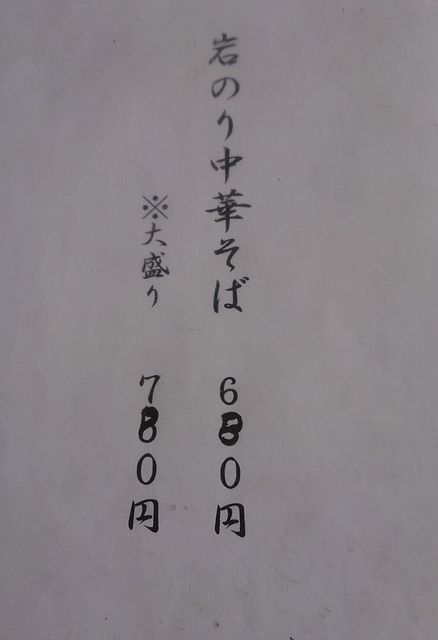 岩のり中華そば 680円
※大盛り 780円